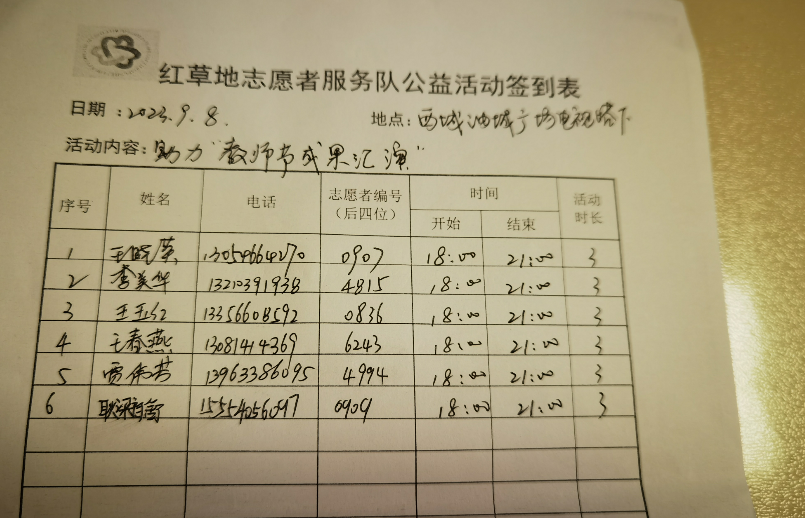 红草地志愿者服务队公益活动签到表
日期：2023.9.8. 地点：西城油城广场电视塔下
活动内容：助力"教师节成果汇演"
序号 姓名 电话 志愿者编号（后四位） 时间 活动时长
开始 结束
1 王晓英 13054664270 0907 18:00 21:00 3
2 李美华 13210391938 4815 18:00 21:00 3
3 王玉红 13356608592 0836 18:00 21:00 3
4 王春燕 13081414369 6243 18:00 21:00 3
5 贾伟芳 13963386095 4994 18:00 21:00 3
6 15554056097 0909 18:00 21:00 3